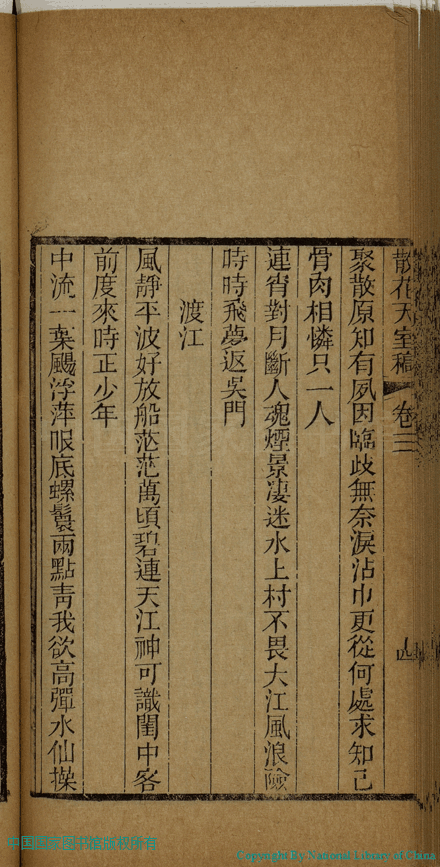 散花天室稿 卷三 四
聚散原知有夙因臨歧無奈淚沾巾更從何處求知己
骨肉相憐只一人
連宵對月斷人魂煙景凄迷水上村不畏大江風浪險
時時飛夢返吳門
渡江
風靜平波好放船茫茫萬頃碧連天江神可識閨中客
前度來時正少年
中流一葉颺浮萍眼底螺鬟兩點靑我欲高彈水仙操
中国国家图书馆版权所有
Copyright By National Library of China